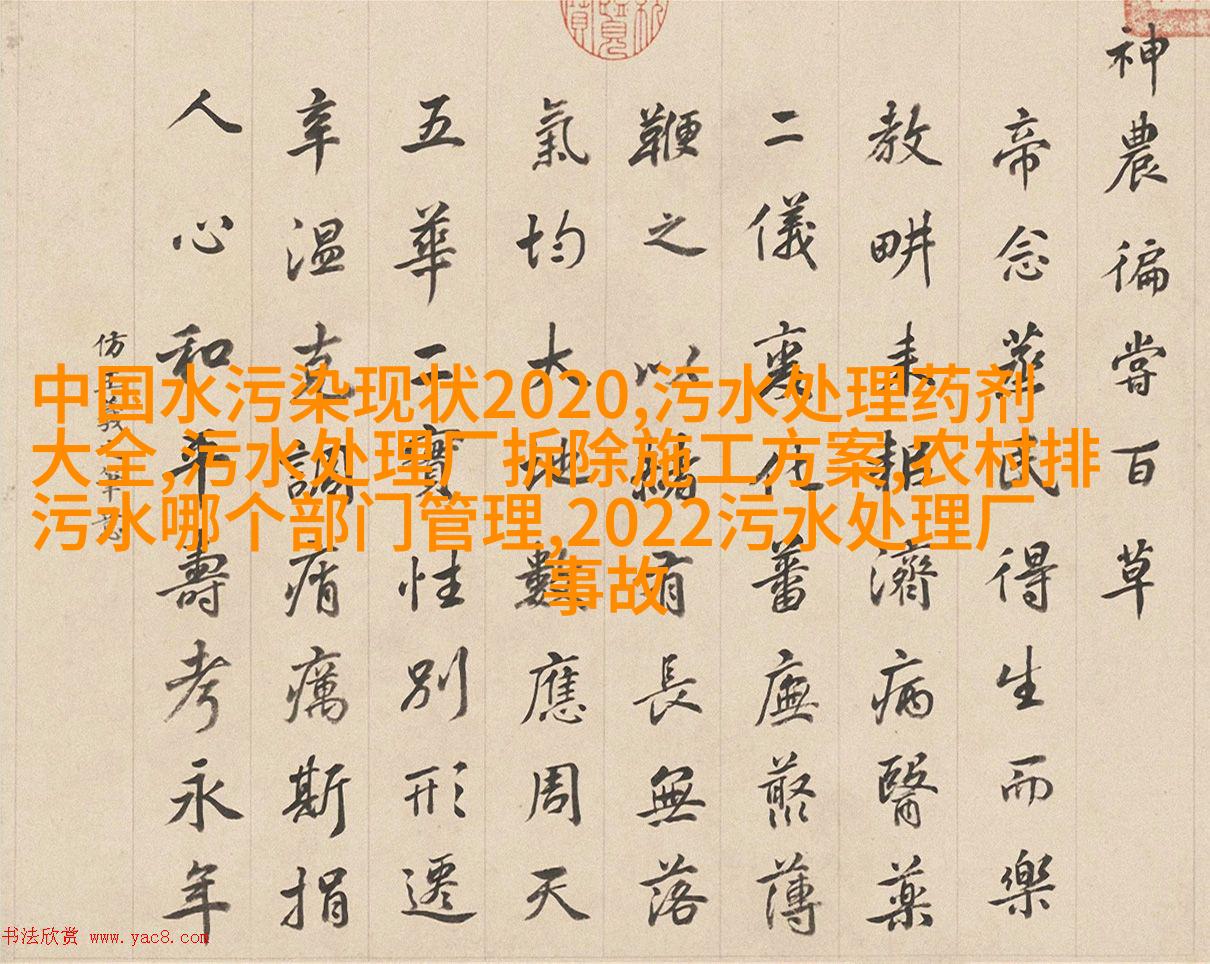 神農徧嘗百草
帝念蒸民得生而樂
教畊耒耜濟病醫藥
二儀化蕃廡藂薄
鞭之以有長無落
氣均大地數應周天
五華二實性別形遷
辛温克調痟癘斯捐
人心和平壽考永年
仿
中国水污染现状2020,污水处理药剂
大全,污水处理厂拆除施工方案,农村排
污水哪个部门管理,2022污水处理厂
事故
书法欣赏 www.yac8.com